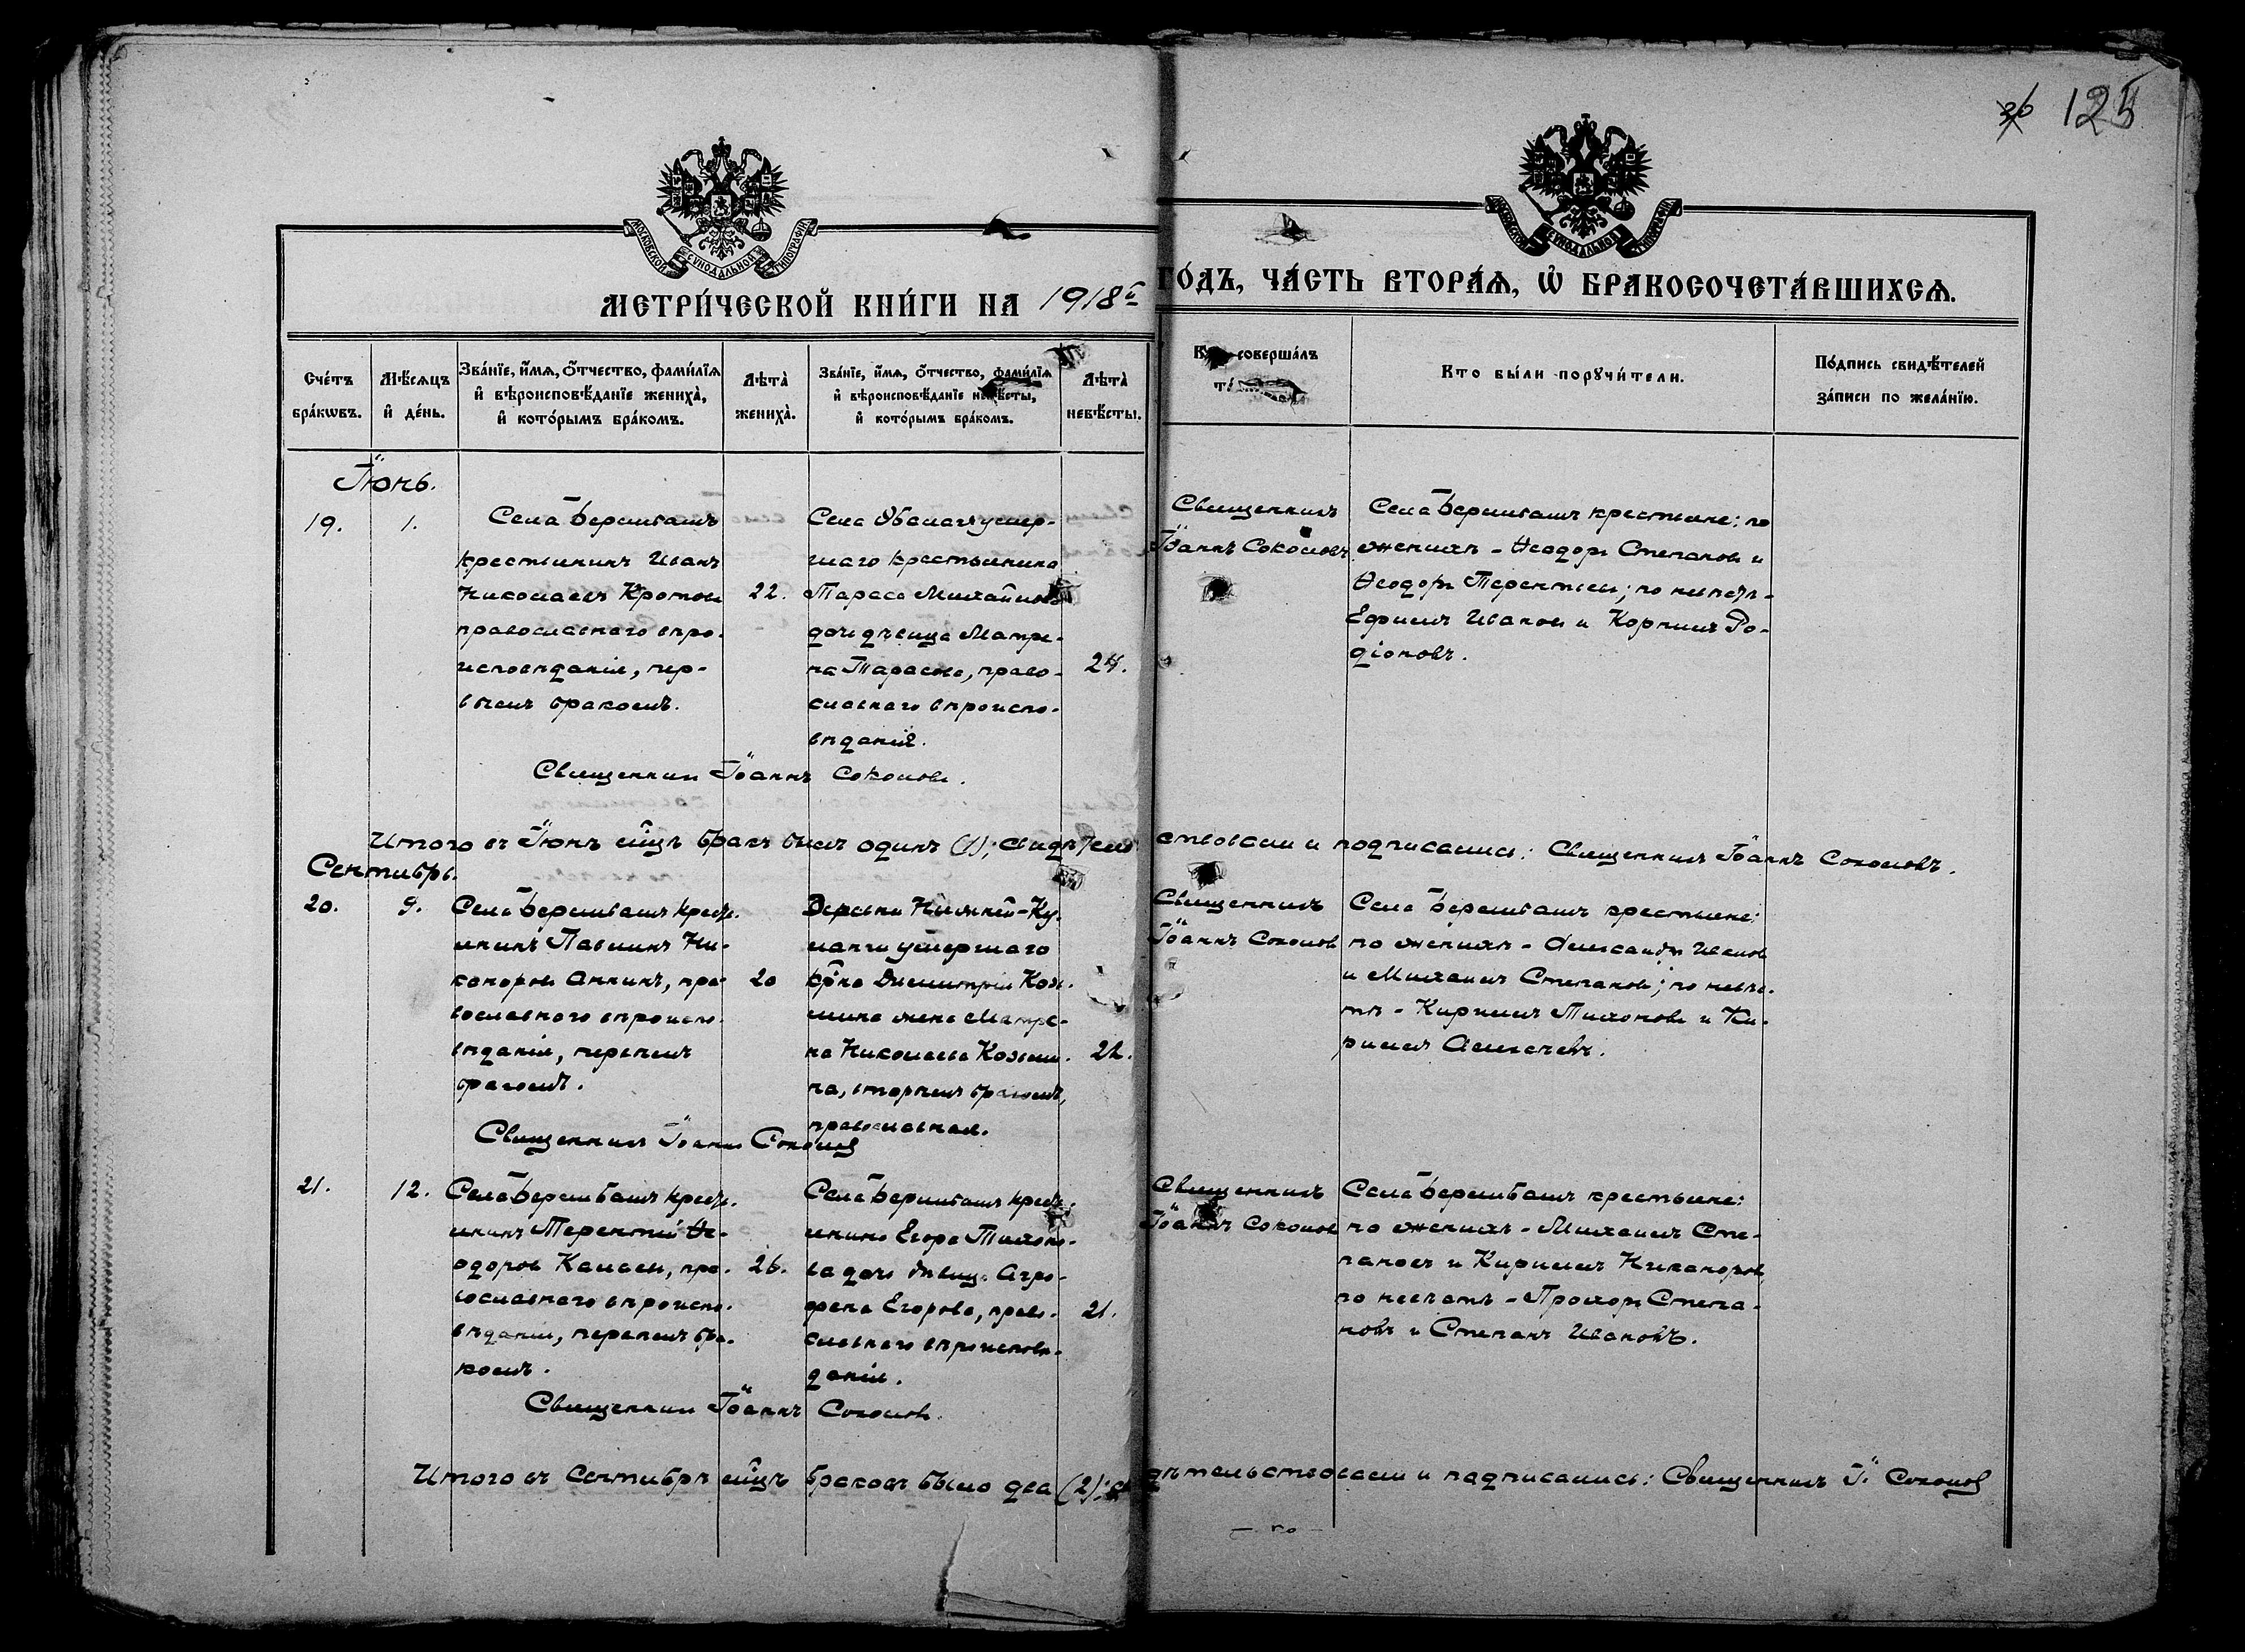 125
МОСКОВСКОЙ СѴНОДАЛЬНОЙ ТИПОГРАФІИ
МОСКОВСКОЙ СѴНОДАЛЬНОЙ ТИПОГРАФІИ
МЕТРИ́ЧЕСКОЙ КНИ́ГИ НА 1918й ГО́ДЪ, ЧА́СТЬ ВТОРА́Ѧ, Ѽ БРАКОСОЧЕТА́ВШИХСѦ.
Сче́тъ
бра́кѡвъ.
Мѣ́сѧцъ
и҆ де́нь.
Зва́нїе, и҆́мѧ, ѻ҆́тчество, фами́лїѧ
и҆ вѣроисповѣ́данїе жениха̀,
и҆ кото́рымъ бра́комъ.
Лѣта̀
жениха̀.
Зва́нїе, и҆́мѧ, ѻ҆́тчество, фами́лїѧ
и҆ вѣроисповѣ́данїе невѣ́сты,
и҆ кото́рымъ бра́комъ.
Лѣта̀
невѣ́сты.
соверша́лъ
Кто бы́ли порꙋчи́тели.
По́дпись свидѣ́телей
за́писи по жела́нїю.
Іюнь.
19.
1.
Села Берлибашъ
крестьянинъ Иванъ
Николаевъ Кротовъ
православнаго вѣро-
исповѣданія, пер-
вымъ бракомъ.
22.
Села умер-
шаго крестьянина
Тараса Михайлова
дочь дѣвица Матре-
на Тарасова, право-
славнаго вѣроиспо-
вѣданія.
24.
Священникъ
Іоаннъ Соколовъ
Села Берлибашъ крестьяне: по
женихѣ - Ѳеодоръ Степановъ и
Ѳеодоръ Терентьевъ; по невѣстѣ -
Ефимъ Ивановъ и Корнилъ Ро-
діоновъ.
Священникъ Іоаннъ Соколовъ.
Итого въ Іюнѣ мцѣ бракъ былъ одинъ (1); свидѣтельствовали и подписались: Священникъ Іоаннъ Соколовъ.
Сентябрь.
20.
9.
Села Берлибашъ крест-
янинъ Павлинъ Ни-
каноровъ Аникинъ, пра-
вославнаго вѣроиспо-
вѣданія, первымъ
бракомъ.
20
Деревни Нижней-
умершаго
кр-на Димитрія
жена Матре-
на Николаева
на, вторымъ бракомъ,
православная.
22.
Священникъ
Іоаннъ Соколовъ
Села Берлибашъ крестьяне:
по женихѣ - Александръ Ивановъ
и Михаилъ Степановъ; по невѣс-
тѣ - Кириллъ Тихоновъ и Ки-
риллъ Алексѣевъ.
Священникъ Іоаннъ Соколовъ
21.
12.
Села Берлибашъ крест-
янинъ Терентій Ѳе-
одоровъ, пра-
вославнаго вѣроиспо-
вѣданія, первымъ бра-
комъ.
26.
Села Берлибашъ крест-
янина Егора Тихоно-
ва дочь дѣвица Агра-
фена Егорова, право-
славнаго вѣроисповѣ-
данія.
21.
Священникъ
Іоаннъ Соколовъ
Села Берлибашъ крестьяне:
по женихѣ - Михаилъ Сте-
пановъ и Кириллъ Никаноровъ,
по невѣстѣ - Прохоръ Степа-
новъ и Степанъ Ивановъ.
Священникъ Іоаннъ Соколовъ.
Итого въ Сентябрѣ мцѣ браковъ было два (2); свидѣтельствовали и подписались: Священникъ І. Соколовъ